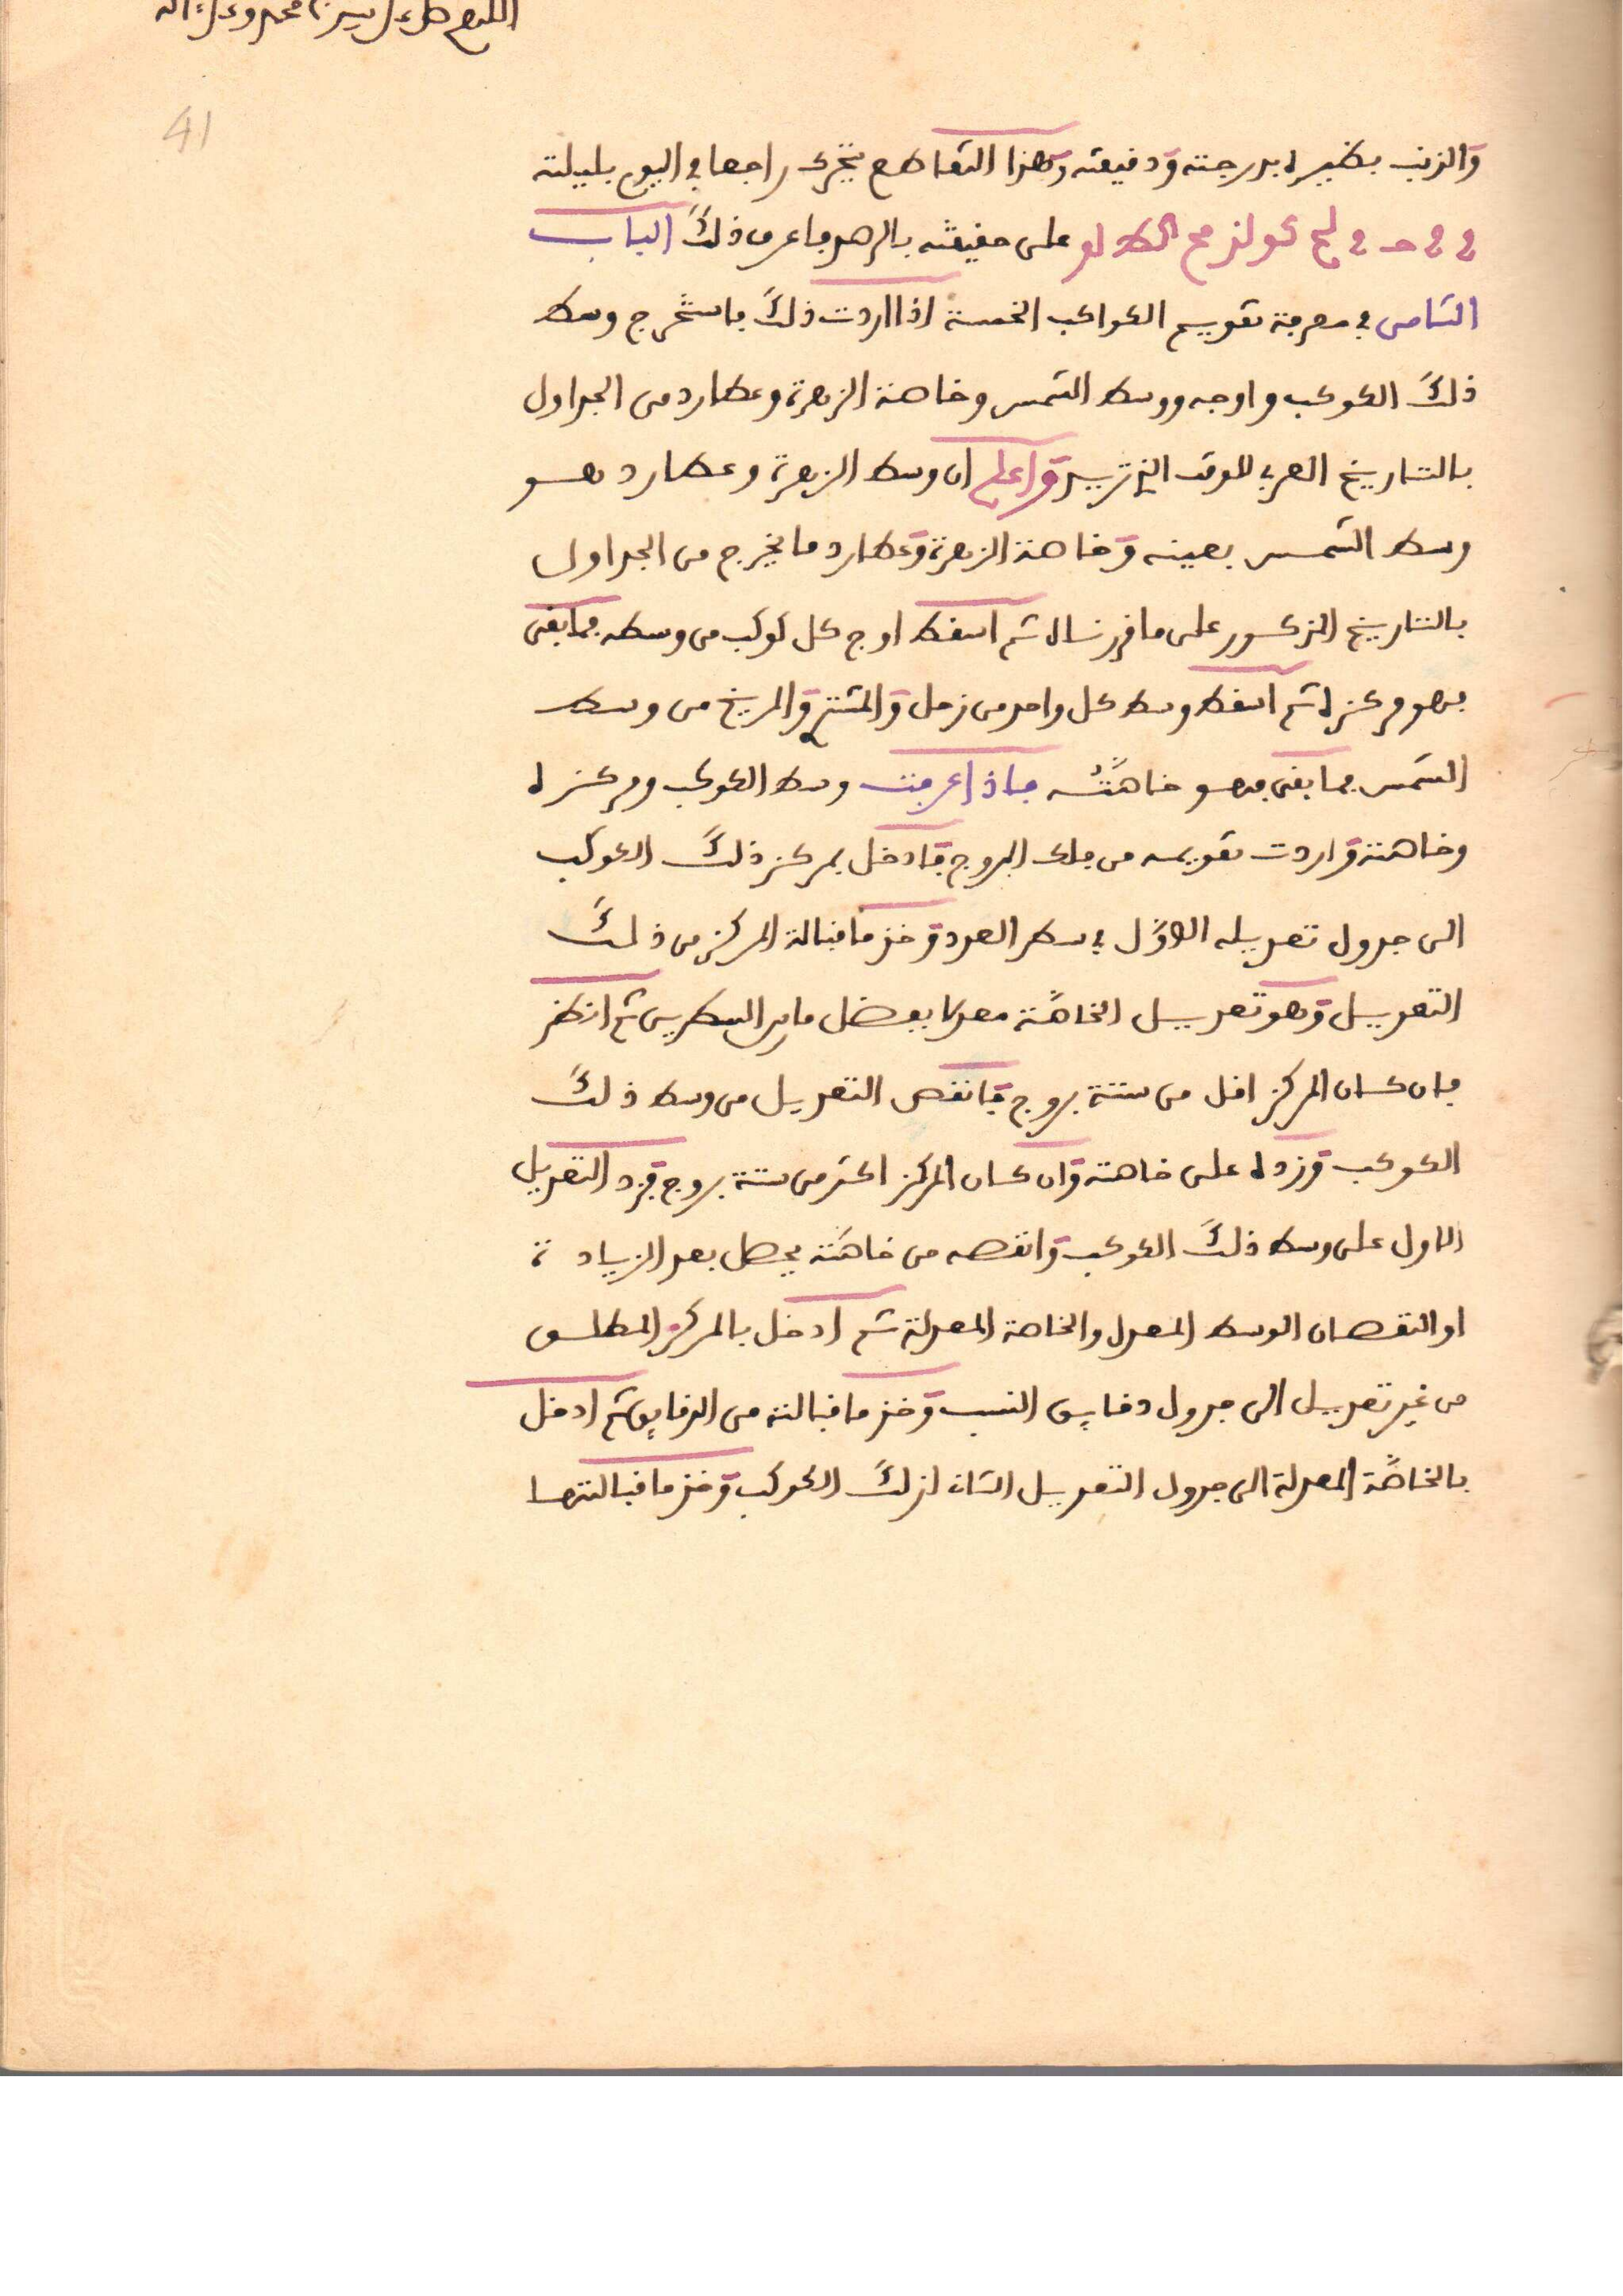 اللهم صل على سيدنا محمد وعلى ءاله
41
والذنب بنظيره بدرجته ودقيقته وهذا التقاطع يتحرك راجعا في اليوم بليلته
على حقيقته بالرصد فاعرف ذلك الباب
الثامن في معرفة تقويم الكواكب الخمسة اذا اردت ذلك فاستخرج وسط
ذلك الكوكب واوجه ووسط الشمس وخاصة الزهرة وعطارد من الجداول
بالتاريخ العربي للوقت الذي تريد واعلم ان وسط الزهرة وعطارد هو
وسط الشمس بعينه وخاصة الزهرة وعطارد ما يخرج من الجداول
بالتاريخ المذكور على ما قررناه ثم اسقط اوج كل كوكب من وسطه فما بقى
فهو مركزه ثم اسقط وسط كل واحد من زحل والمشتري والمريخ من وسط
الشمس فما بقى فهو خاصته فاذا عرفت وسط الكوكب ومركزه
وخاصته واردت تقويمه من فلك البروج فادخل بمركز ذلك الكوكب
الى جدول تعديله الاول في سطر العدد وخذ ما قبالة المركز من ذلك
التعديل وهو تعديل الخاصة معدلا بفضل ما بين السطرين ثم انظر
فان كان المركز اقل من ستة بروج فانقص التعديل من وسط ذلك
الكوكب وزده على خاصته وان كان المركز اكثر من ستة بروج فزد التعديل
الاول على وسط ذلك الكوكب وانقصه من خاصته يحصل بعد الزيادة
او النقصان الوسط المعدل والخاصة المعدلة ثم ادخل بالمركز المطلق
من غير تعديل الى جدول دقايق النسب وخذ ما قبالته من الدقايق ثم ادخل
بالخاصة المعدلة الى جدول التعديل الثاني لذلك الكوكب وخذ ما قبالتها